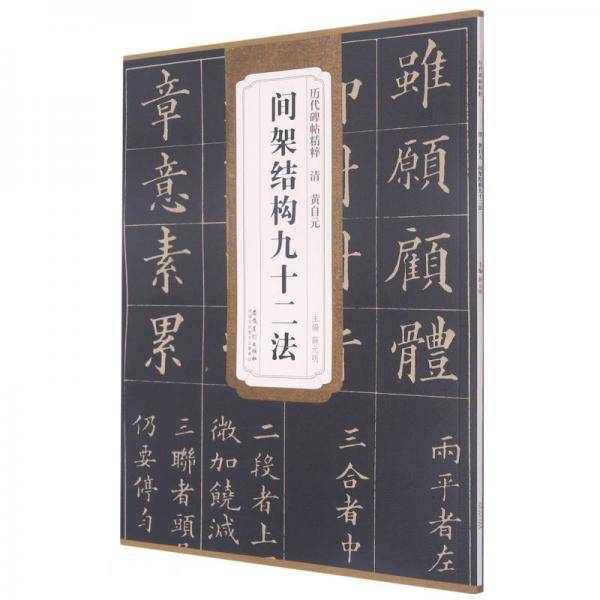 历代碑帖精粹 清 黄自元
间架结构九十二法
主编 薛元明
安徽美術出版社
雖願顧體
章意素累
兩平者左
三合者中
二段者上
微加饒減
三聯者頭
仍要停勻